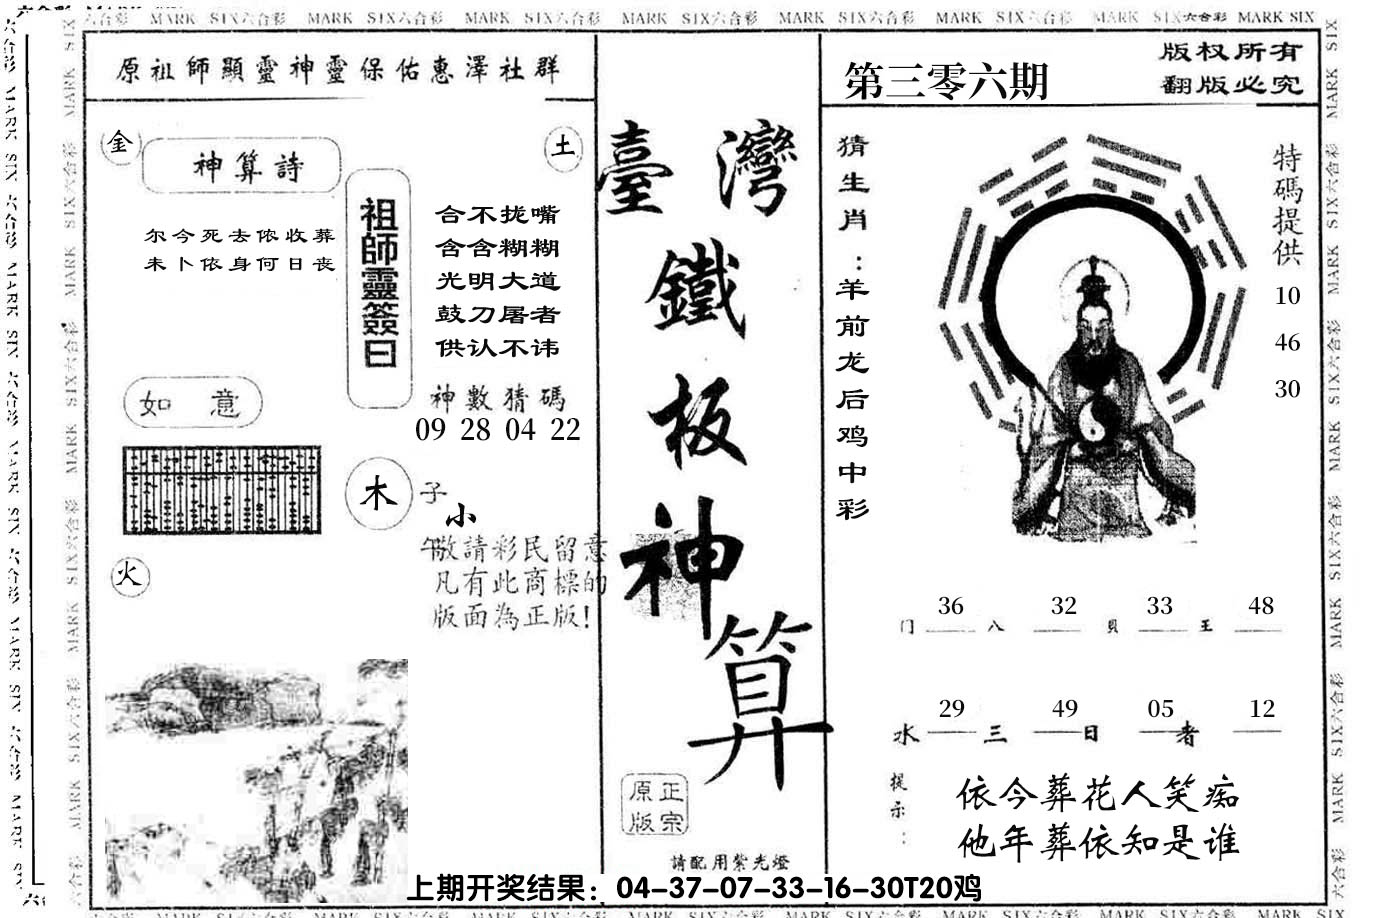 MARK SIX六合彩 MARK SIX六合彩 MARK SIX六合彩 MARK SIX六合彩 MARK SIX六合彩 MARK SIX六合彩 MARK SIX六合彩 MARK SIX
原祖師顯靈神靈保佑惠澤社群
金
神算詩
土
尔今死去侬收葬
未卜依身何日丧
祖師靈簽曰
合不拢嘴
含含糊糊
光明大道
鼓刀屠者
供认不讳
神數猜碼
09 28 04 22
如意
木
子
小
午
敬請彩民留意
凡有此商標的
版面為正版!
火
臺灣
鐵
板
神
算
正宗
原版
請配用紫光燈
第三零六期
版权所有
翻版必究
猜生肖:羊前龙后鸡中彩
特碼提供
10
46
30
36 32 33 48
门 八 貝 王
29 49 05 12
水 三 日 者
提示:
依今葬花人笑痴
他年葬依知是谁
上期开奖结果：04-37-07-33-16-30T20鸡